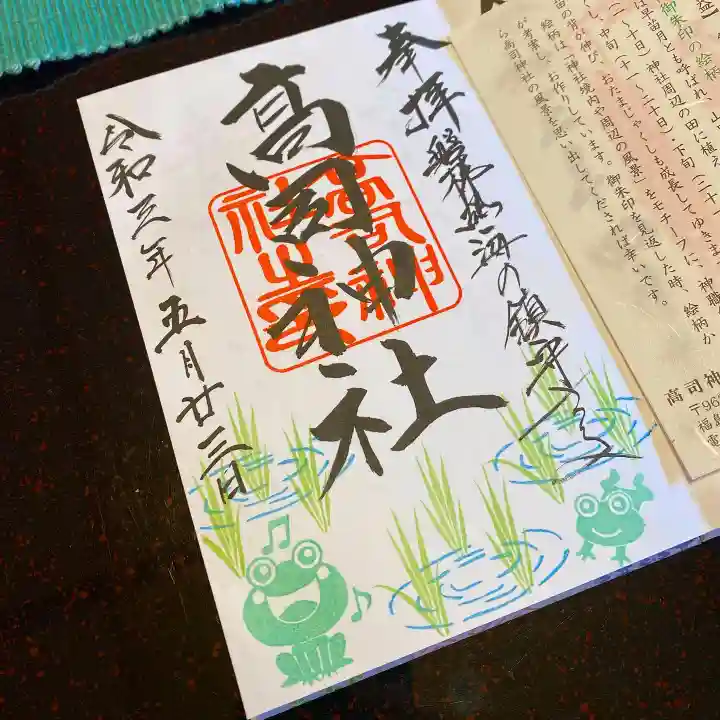 奉拝 磐梯熱海の鎮守さま
高司神社
令和三年五月廿三日
益】
御朱印の絵柄
は早苗月とも呼ばれ、山
～十日）神社周辺の田に植え
苗の背が伸び、中旬（十一～二十日）下旬（二十
くし、おたまじゃくしも成長してゆきま
絵柄は「神社境内や周辺の風景」をモチーフに、神職
が考案し、お作りしています。御朱印を見返した時、絵柄か
ら高司神社の風景を思い出してくだされば幸いです。
高司神
〒96
福島
電